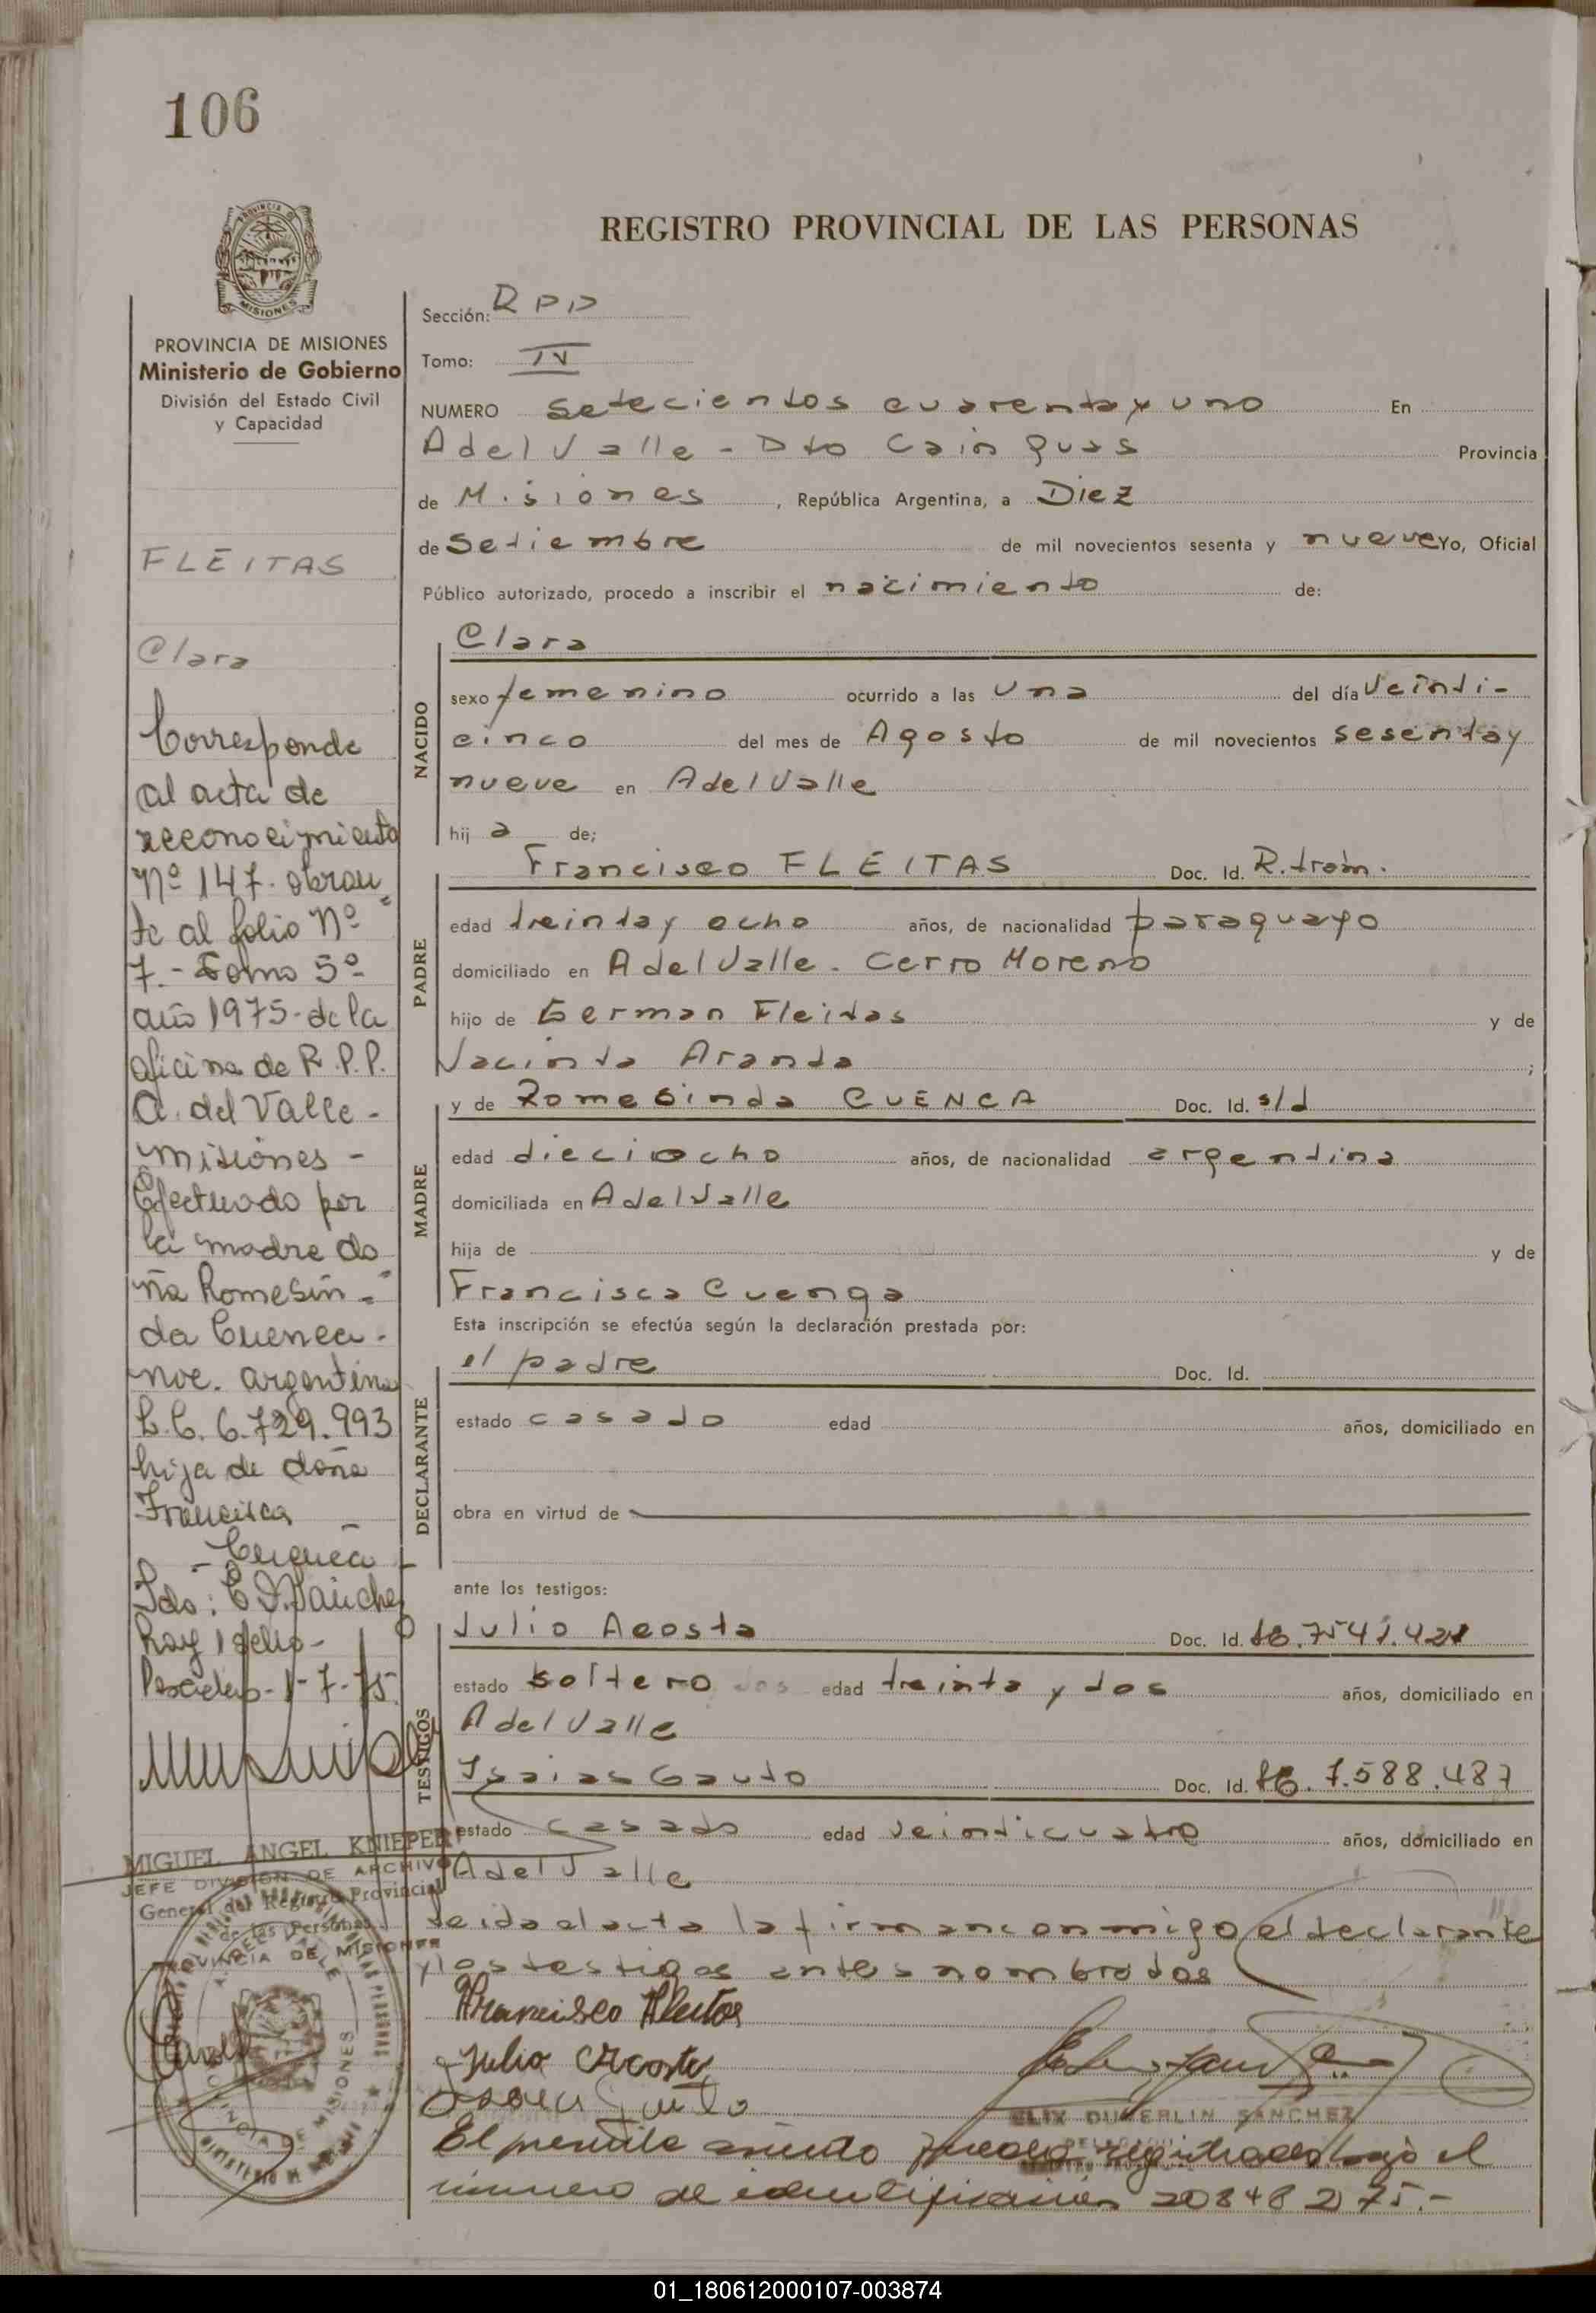 106
REGISTRO PROVINCIAL DE LAS PERSONAS
PROVINCIA DE MISIONES
Ministerio de Gobierno
División del Estado Civil
y Capacidad
FLEITAS
Clara
Corresponde
al acta de
reconocimiento
Nº 147. obran
te al folio Nº
7.- Tomo 5º
año 1975- de la
oficina de R.P.P.
A. del Valle -
Misiones -
Efectuado por
la madre do
ña Romesin -
da Cuenca -
nac. argentina
L.C. 6.729.993
hija de doña
Francisca
- Cuenca -
Fdo: E D. Sanchez
Hay 1 sello -
Posadas - 1-7-75
MIGUEL ANGEL KNIEPER
JEFE DIVISION DE ARCHIVO
General del Registro Provincial
de las Personas
PROVINCIA DE MISIONES
Sección: RPP
Tomo: IV
NUMERO setecientos cuarenta y uno En
A del Valle - Dto Cainguas Provincia
de Misiones, República Argentina, a Diez
de Setiembre de mil novecientos sesenta y nueve Yo, Oficial
Público autorizado, procedo a inscribir el nacimiento de:
NACIDO
Clara
sexo femenino ocurrido a las una del día veinti-
cinco del mes de Agosto de mil novecientos sesenta y
nueve en A del Valle
hij a de;
PADRE
Francisco FLEITAS Doc. Id. R.
edad treinta y ocho años, de nacionalidad paraguayo
domiciliado en A del Valle - Cerro Moreno
hijo de German Fleitas y de
Jacinta Aranda ;
MADRE
y de Romesinda CUENCA Doc. Id. s/d
edad dieciocho años, de nacionalidad argentina
domiciliada en A del Valle
hija de y de
Francisca Cuenga
Esta inscripción se efectúa según la declaración prestada por:
DECLARANTE
el padre Doc. Id.
estado casado edad años, domiciliado en
obra en virtud de
ante los testigos:
TESTIGOS
Julio Acosta Doc. Id.
estado soltero edad treinta y dos años, domiciliado en
A del Valle
Isaias Gauto Doc. Id. 7.588.487
estado casado edad veinticuatro años, domiciliado en
A del Valle
leida el acta la firman conmigo el declarante
y los testigos antes nombrados
Francisco Fleitas
Julio Acosta
ELIX DUBERLIN SANCHEZ
El presente asiento queda registrado bajo el
número de identificación 20848275.-
01_180612000107-003874